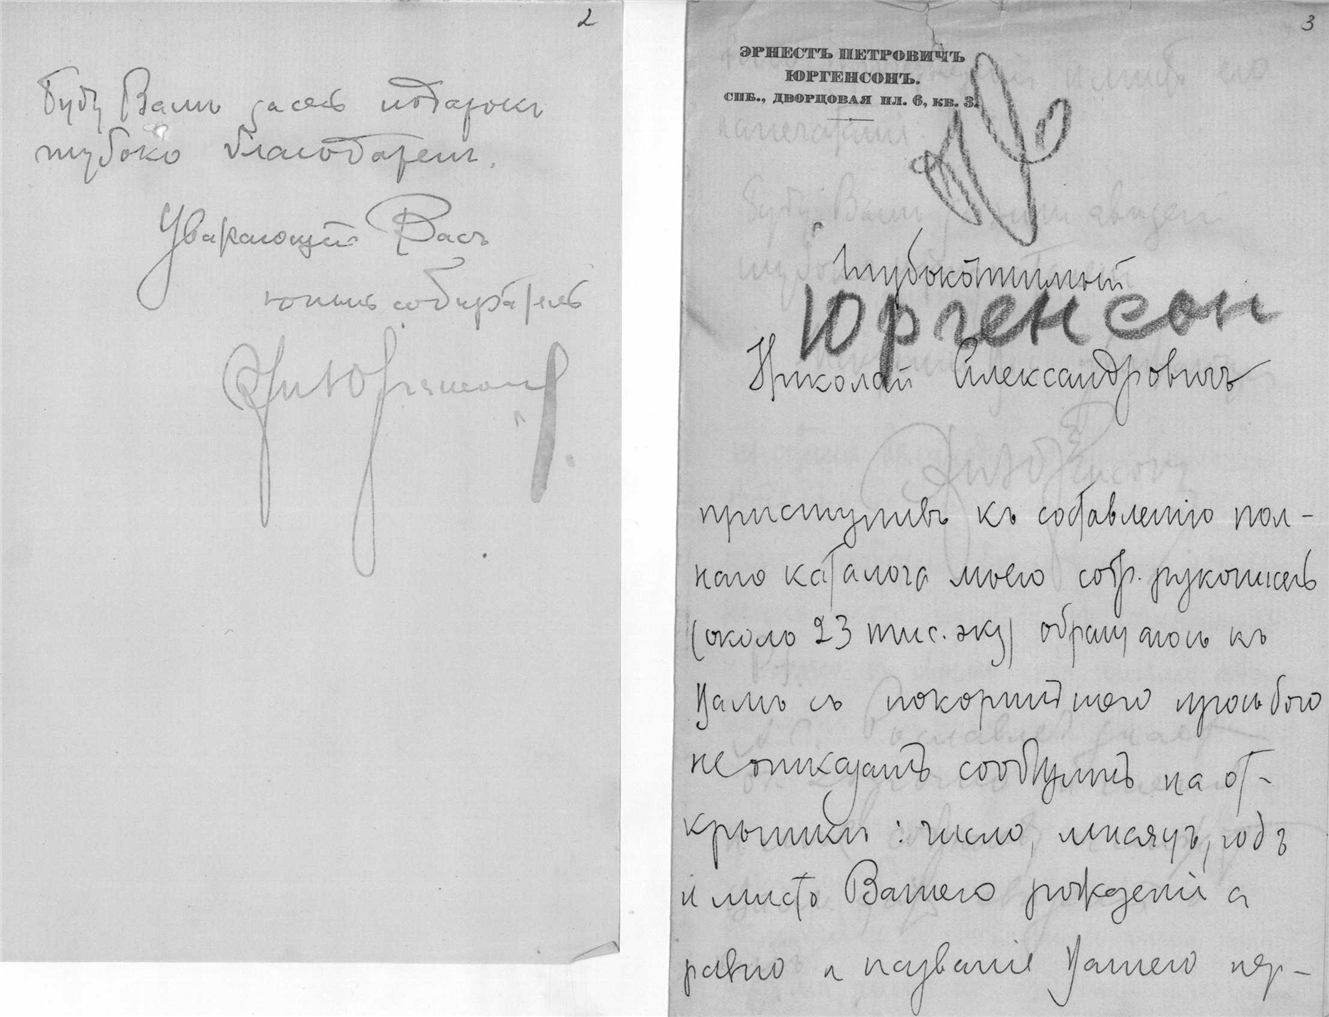 2
буду Вамъ за сей подарокъ
глубоко благодаренъ.
Уважающій Васъ
юный собиратель
Эрн Юргенсонъ
3
ЭРНЕСТЪ ПЕТРОВИЧЪ
ЮРГЕНСОНЪ.
СПБ., ДВОРЦОВАЯ ПЛ. 6, КВ. 3.
Глубокочтимый
Юргенсон
Николай Александровичъ
приступивъ къ составленію пол-
наго каталога моего собр. рукописей
(около 23 тыс. экз) обращаюсь къ
Вамъ съ покорнѣйшего просьбою
не отказать сообщить на от-
крытки: число, мѣсяцъ, годъ
и мѣсто Вашего рожденія а
равно и названіе Вашего пер-